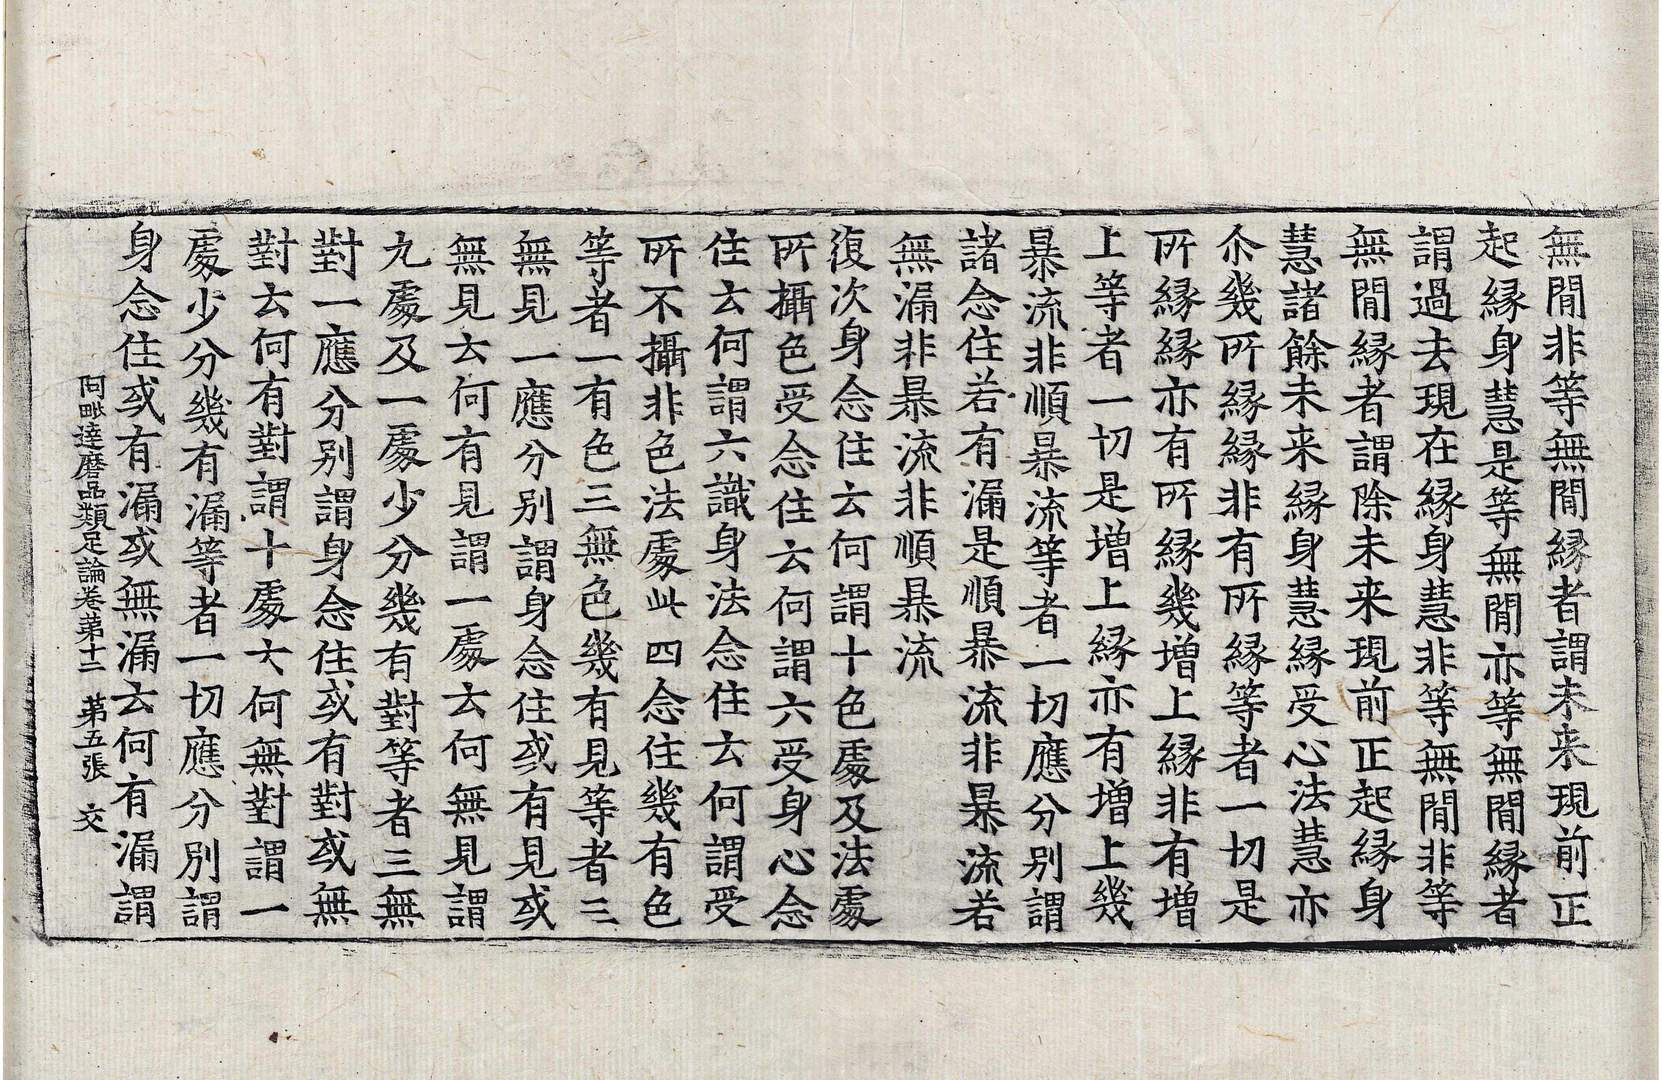 無閒非等無閒緣者謂未来現前正
起緣身慧是等無閒亦等無閒緣者
謂過去現在緣身慧非等無閒非等
無閒緣者謂除未来現前正起緣身
慧諸餘未来緣身慧緣受心法慧亦
尒幾所緣緣非有所緣等者一切是
所緣緣亦有所緣幾增上緣非有增
上等者一切是增上緣亦有增上幾
暴流非順暴流等者一切應分別謂
諸念住若有漏是順暴流非暴流若
無漏非暴流非順暴流
復次身念住云何謂十色處及法處
所攝色受念住云何謂六受身心念
住云何謂六識身法念住云何謂受
所不攝非色法處此四念住幾有色
等者一有色三無色幾有見等者三
無見一應分別謂身念住或有見或
無見云何有見謂一處云何無見謂
九處及一處少分幾有對等者三無
對一應分別謂身念住或有對或無
對云何有對謂十處云何無對謂一
處少分幾有漏等者一切應分別謂
身念住或有漏或無漏云何有漏謂
阿毗達磨品類足論卷第十二 第五張 交